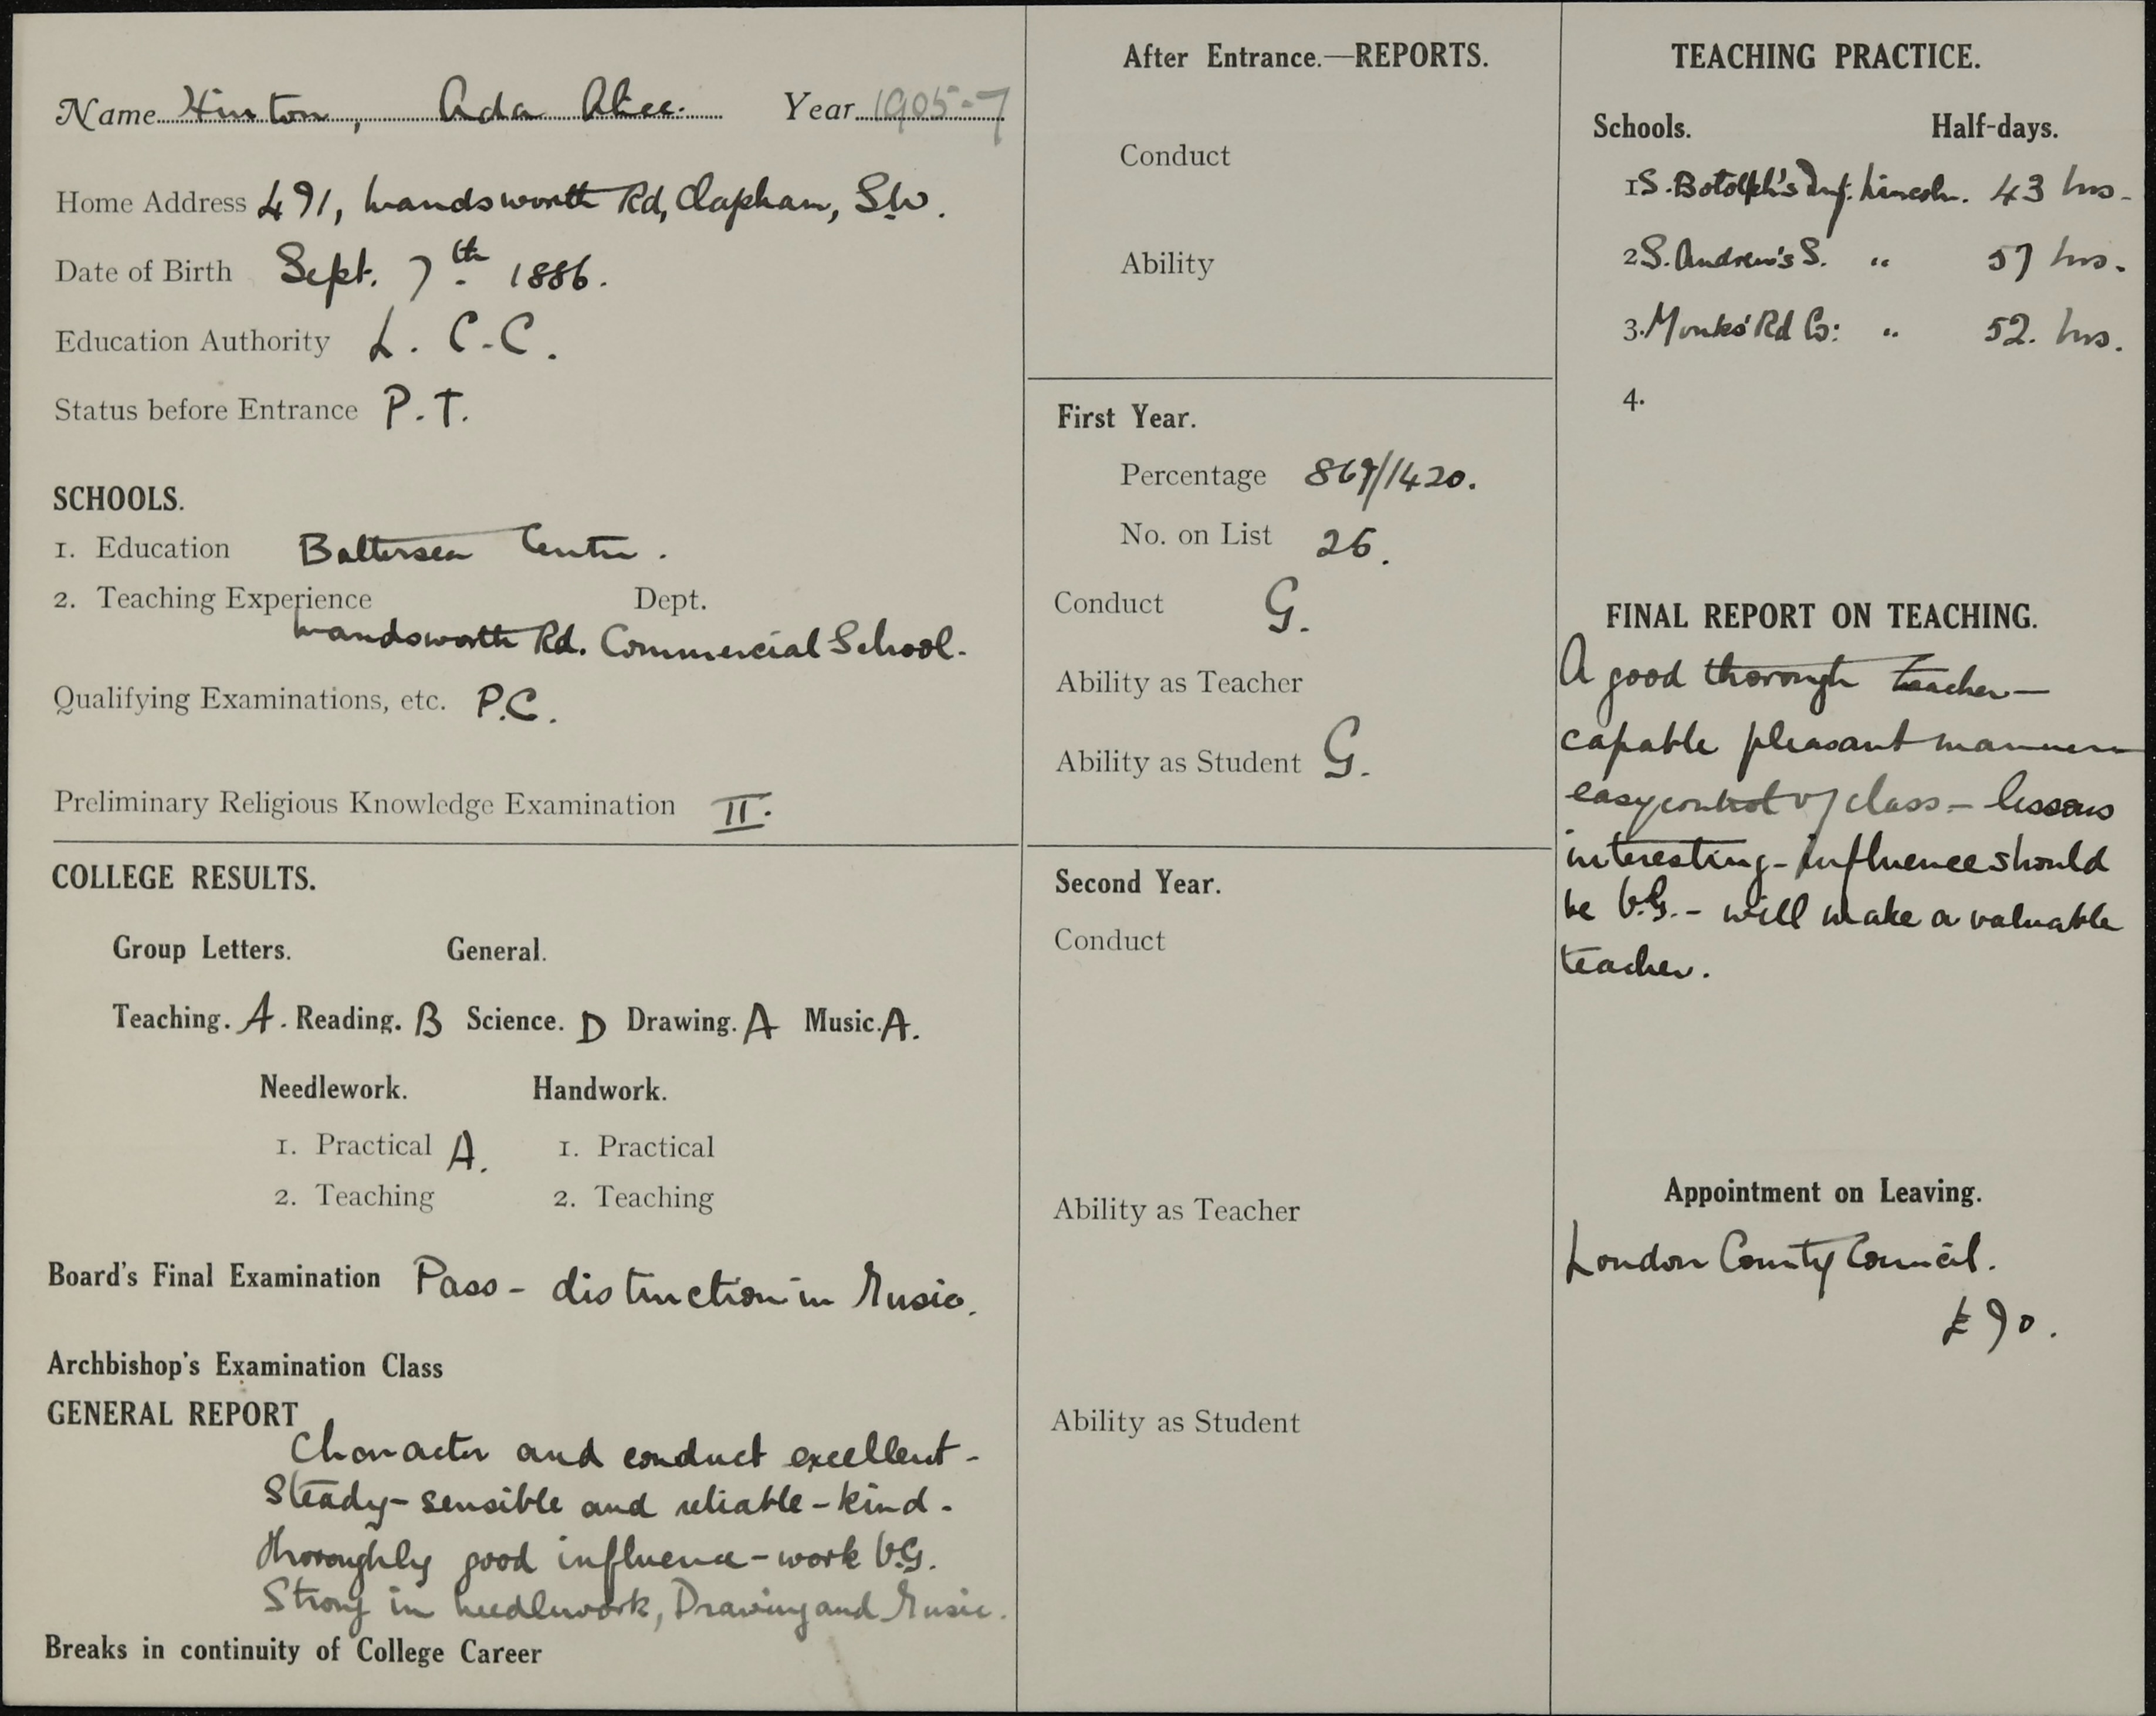 Name Hinton, Ada Alice. Year 1905-7
Home Address 491, Wandsworth Rd, Clapham, S.W.
Date of Birth Sept. 7th 1886.
Education Authority L.C.C.
Status before Entrance P.T.
SCHOOLS.
1. Education Battersea Centre.
2. Teaching Experience Dept.
Wandsworth Rd. Commercial School.
Qualifying Examinations, etc. P.C.
Preliminary Religious Knowledge Examination II.
COLLEGE RESULTS.
Group Letters. General.
Teaching. A. Reading. B Science. D Drawing. A Music. A.
Needlework. Handwork.
1. Practical A. 1. Practical
2. Teaching 2. Teaching
Board's Final Examination Pass - distinction in Music.
Archbishop's Examination Class
GENERAL REPORT
Character and conduct excellent -
Steady - sensible and reliable - kind -
thoroughly good influence - work V.G.
Strong in needlework, Drawing and Music.
Breaks in continuity of College Career
After Entrance.—REPORTS.
Conduct
Ability
First Year.
Percentage 869/1420.
No. on List 26.
Conduct G.
Ability as Teacher
Ability as Student G.
Second Year.
Conduct
Ability as Teacher
Ability as Student
TEACHING PRACTICE.
Schools. Half-days.
1 S. Botolph's Inf. Lincoln. 43 hrs.
2 S. Andrew's S. " 57 hrs.
3. Monks' Rd Co: " 52. hrs.
4.
FINAL REPORT ON TEACHING.
A good thorough teacher -
capable pleasant manner
easy control of class - lessons
interesting - influence should
be V.G. - will make a valuable
teacher.
Appointment on Leaving.
London County Council.
£90.